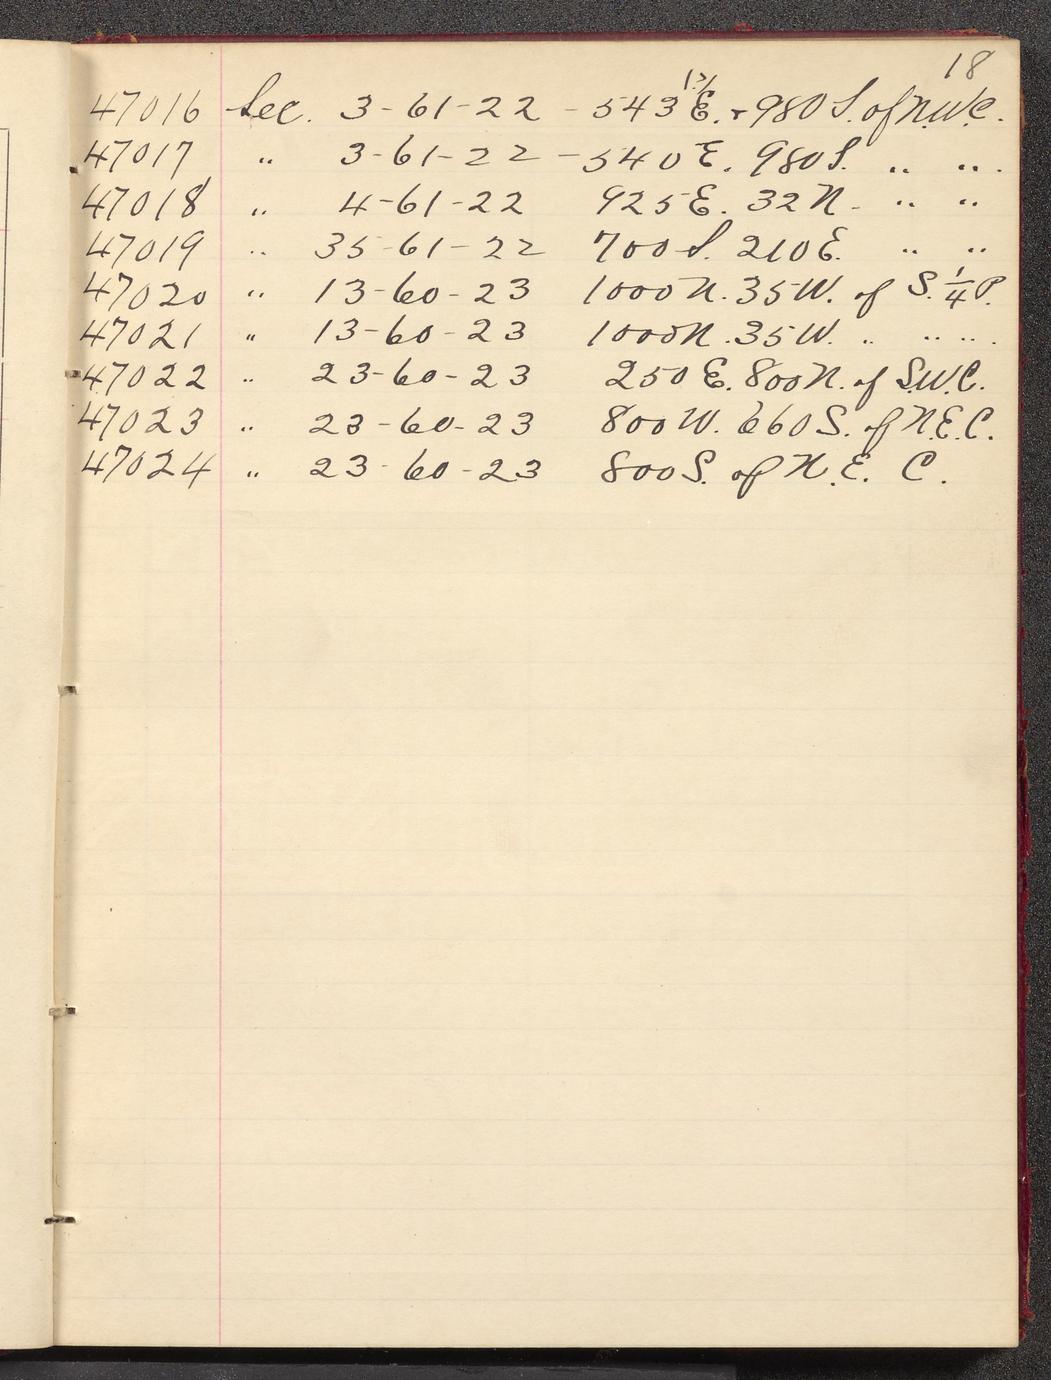 18
47016 Sec. 3-61-22 - 543 E. + 980 S. of N.W.C.
47017 " 3-61-22 - 540 E. 980 S. " " .
47018 " 4-61-22 925 E. 32 N. " "
47019 " 35-61-22 700 S. 210 E. " "
47020 " 13-60-23 1000 N. 35 W. of S. 1/4 P.
47021 " 13-60-23 1000 N. 35 W. " " " .
47022 " 23-60-23 250 E. 800 N. of S.W.C.
47023 " 23-60-23 800 W. 660 S. of N.E.C.
47024 " 23-60-23 800 S. of N.E. C.